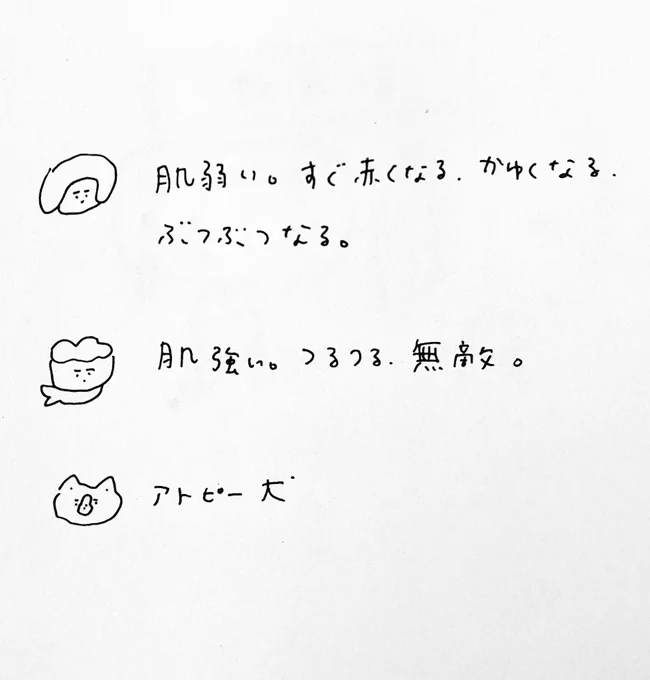 肌弱い。すぐ赤くなる.かゆくなる.
ぶつぶつなる。
肌強い。つるつる.無敵。
アトピー犬